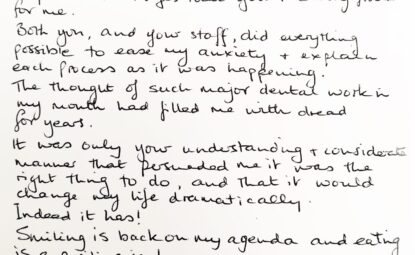 for me.
Both you, and your staff, did everything
possible to ease my anxiety + explain
each process as it was happening.
The thought of such major dental work in
my mouth had filled me with dread
for years.
It was only your understanding + considerate
manner that persuaded me it was the
right thing to do, and that it would
change my life dramatically.
Indeed it has!
Smiling is back on my agenda and eating
is a